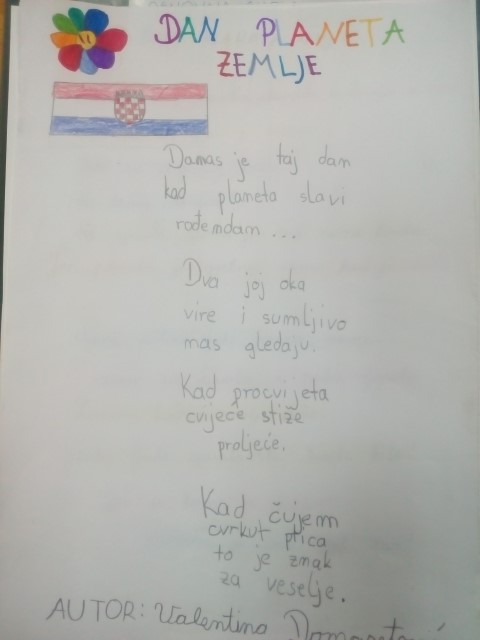 DAN PLANETA
ZEMLJE
Danas je taj dan
kad planeta slavi
rođendan ...
Dva joj oka
vire i sumljivo
nas gledaju.
Kad procvijeta
cvijeće stiže
proljeće.
Kad čujem
cvrkut ptica
to je znak
za veselje.
AUTOR: Valentino